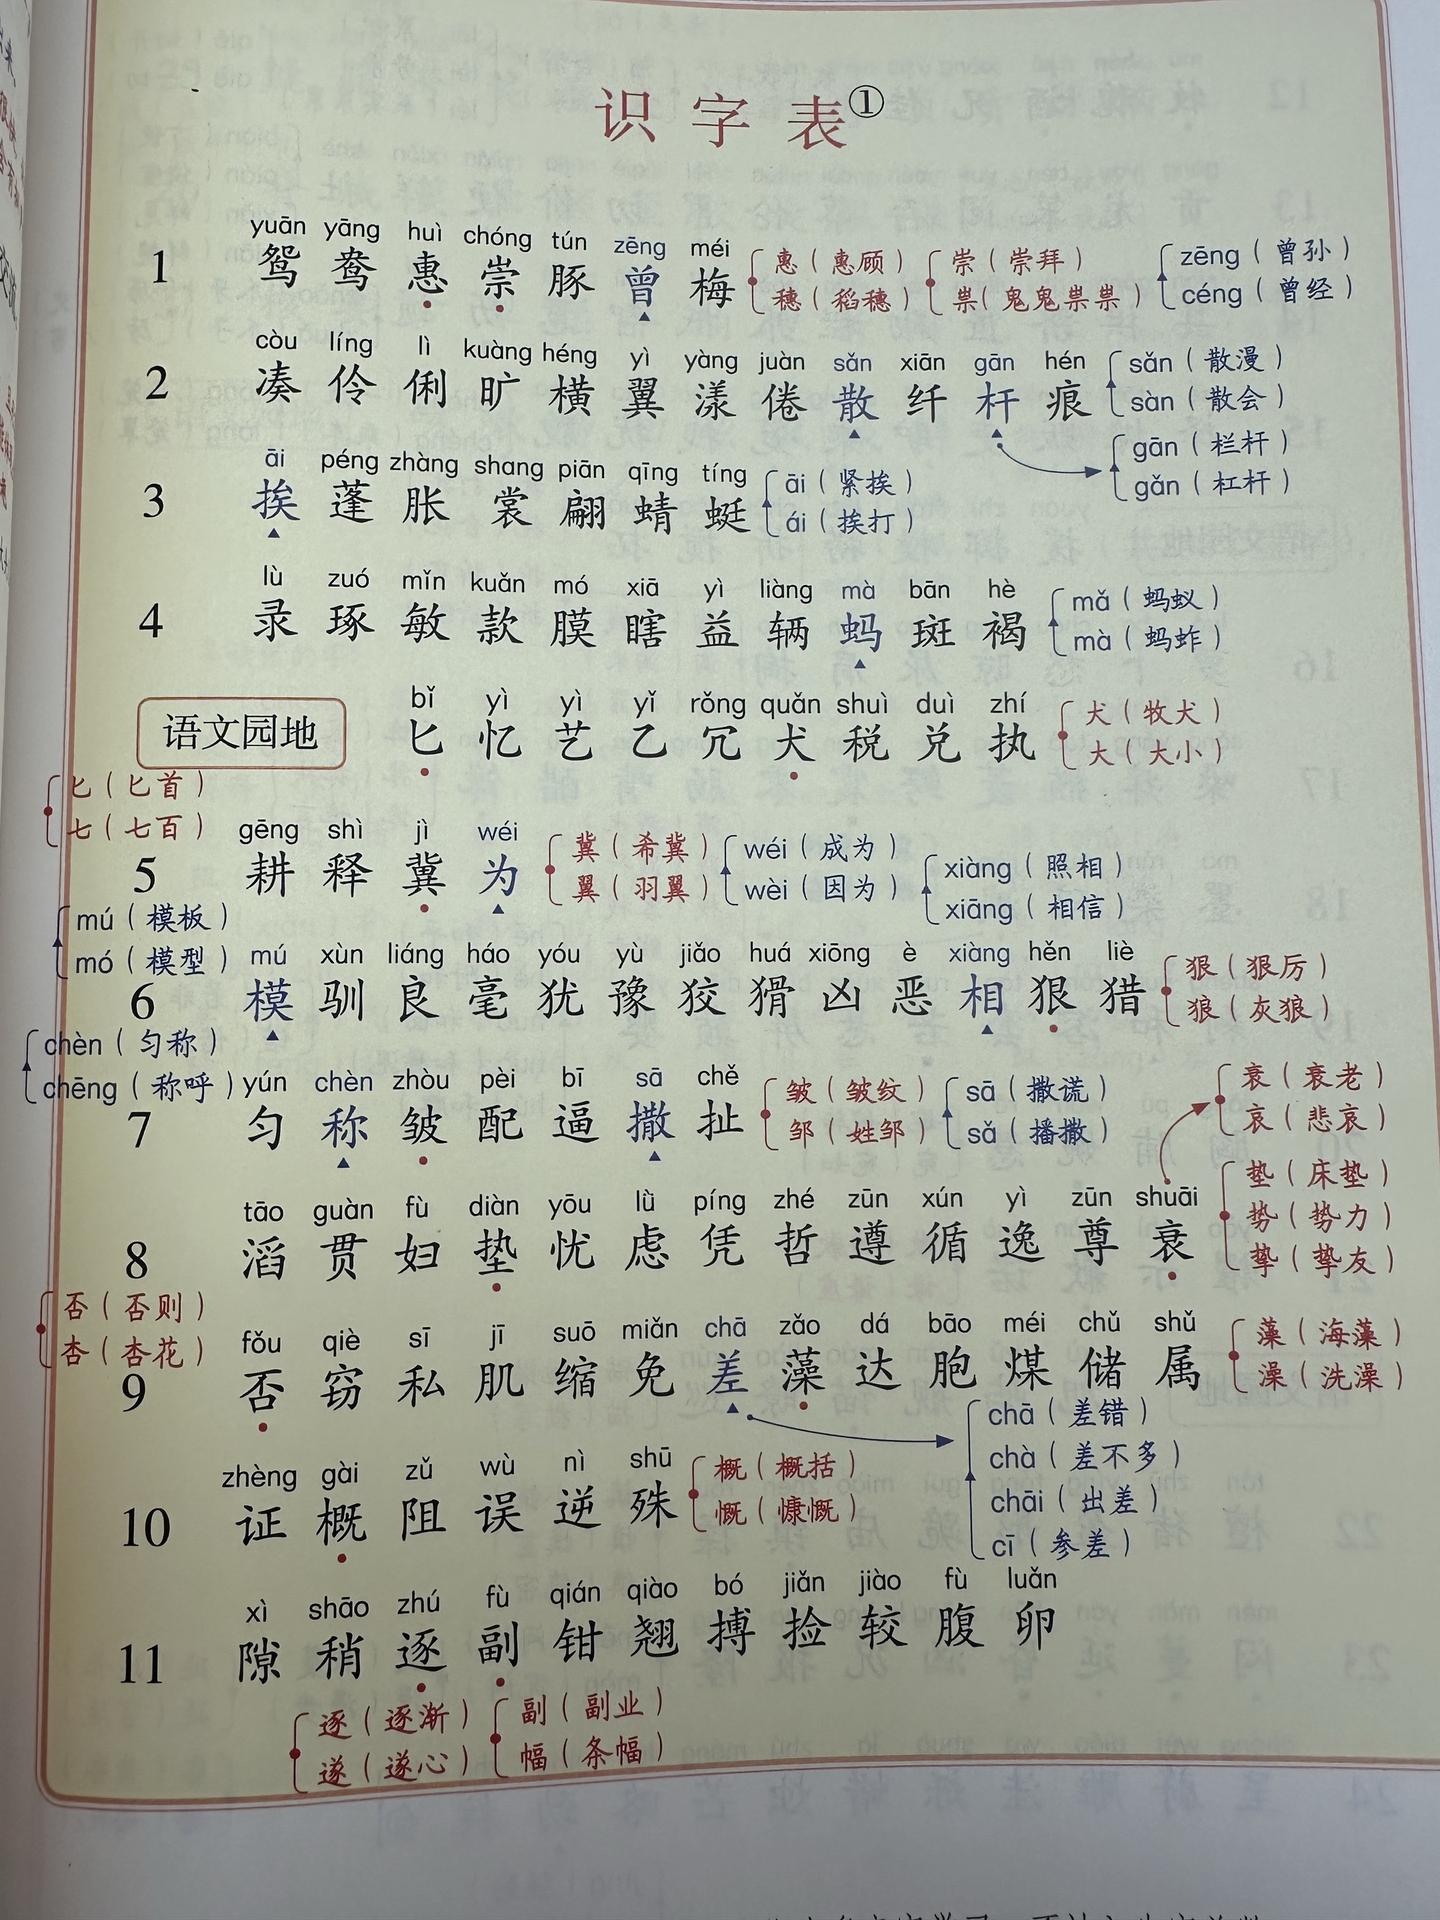 识字表①
yuān yāng huì chóng tún zēng méi
1 鸳 鸯 惠 崇 豚 曾 梅
惠（惠顾）
穗（稻穗）
崇（崇拜）
祟（鬼鬼祟祟）
zēng（曾孙）
céng（曾经）
còu líng lì kuàng héng yì yàng juàn sǎn xiān gān hén
2 凑 伶 俐 旷 横 翼 漾 倦 散 纤 杆 痕
sǎn（散漫）
sàn（散会）
gān（栏杆）
gǎn（杠杆）
āi péng zhàng shang piān qīng tíng
3 挨 蓬 胀 裳 翩 蜻 蜓
āi（紧挨）
ái（挨打）
lù zuó mǐn kuǎn mó xiā yì liàng mà bān hè
4 录 琢 敏 款 膜 瞎 益 辆 蚂 斑 褐
mǎ（蚂蚁）
mà（蚂蚱）
bǐ yì yì yǐ rǒng quǎn shuì duì zhí
语文园地 匕 忆 艺 乙 冗 犬 税 兑 执
犬（牧犬）
大（大小）
匕（匕首）
七（七百）
gēng shì jì wéi
5 耕 释 冀 为
冀（希冀）
翼（羽翼）
wéi（成为）
wèi（因为）
xiàng（照相）
xiāng（相信）
mú（模板）
mó（模型）
mú xùn liáng háo yóu yù jiǎo huá xiōng è xiàng hěn liè
6 模 驯 良 毫 犹 豫 狡 猾 凶 恶 相 狠 猎
狠（狠厉）
狼（灰狼）
chèn（匀称）
chēng（称呼）
yún chèn zhòu pèi bī sā chě
7 匀 称 皱 配 逼 撒 扯
皱（皱纹）
邹（姓邹）
sā（撒谎）
sǎ（播撒）
衰（衰老）
哀（悲哀）
tāo guàn fù diàn yōu lǜ píng zhé zūn xún yì zūn shuāi
8 滔 贯 妇 垫 忧 虑 凭 哲 遵 循 逸 尊 衰
垫（床垫）
势（势力）
挚（挚友）
否（否则）
杏（杏花）
fǒu qiè sī jī suō miǎn chā zǎo dá bāo méi chǔ shǔ
9 否 窃 私 肌 缩 免 差 藻 达 胞 煤 储 属
藻（海藻）
澡（洗澡）
chā（差错）
chà（差不多）
chāi（出差）
cī（参差）
zhèng gài zǔ wù nì shū
10 证 概 阻 误 逆 殊
概（概括）
慨（慷慨）
xì shāo zhú fù qián qiào bó jiǎn jiào fù luǎn
11 隙 稍 逐 副 钳 翘 搏 捡 较 腹 卵
逐（逐渐）
遂（遂心）
副（副业）
幅（条幅）